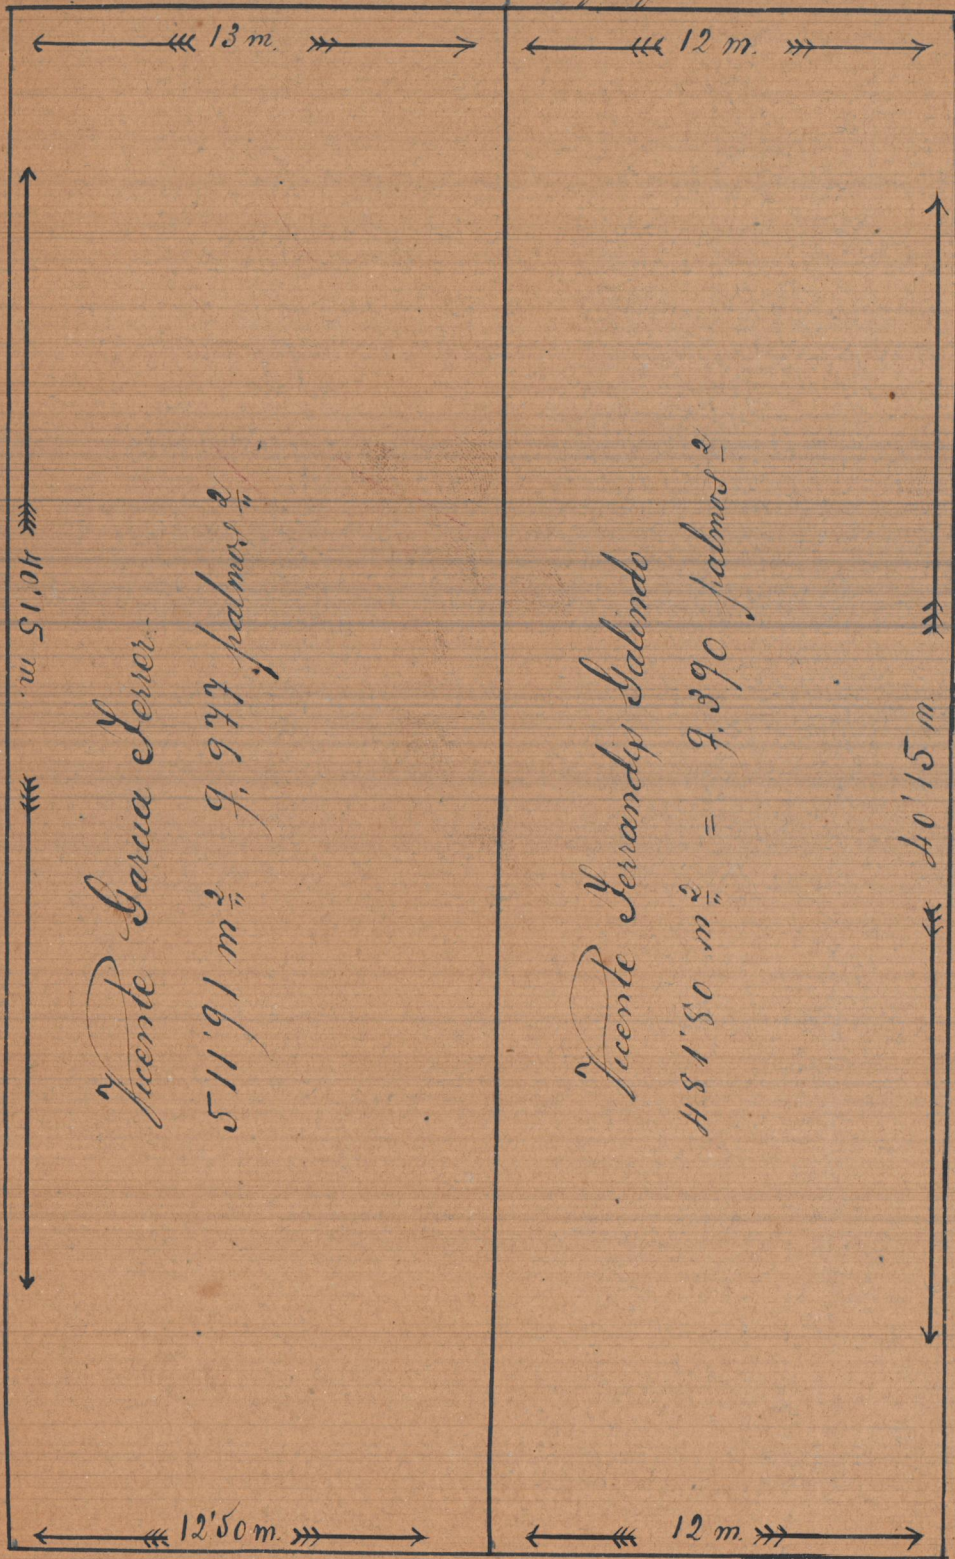 13 m.
12 m.
40'15 m.
Vicente Garcia Ferrer.
511'91 m² 9,977 palmos²
Vicente Ferrandis Galindo
481'80 m² = 9.390 palmos²
40'15 m.
12'50 m.
12 m.